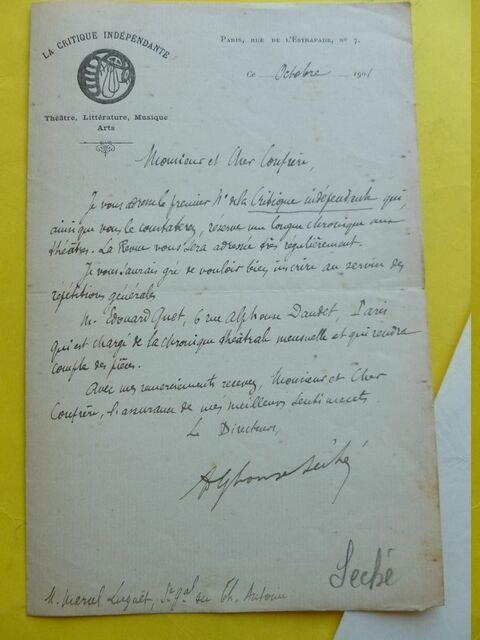 LA CRITIQUE INDÉPENDANTE
Théâtre, Littérature, Musique
Arts
PARIS, RUE DE L'ESTRAPADE, No 7.
Ce Octobre 1901
Monsieur et Cher Confrère,
Je vous adresse le premier No de la Critique indépendante qui,
ainsi que vous le constaterez, réserve une longue chronique aux
théâtres. La Revue vous sera adressée très régulièrement.
Je vous saurai gré de vouloir bien inscrire au service des
répétitions générales
M. Edouard Quet, 6 rue Alphonse Daudet, Paris
qui est chargé de la chronique théâtrale mensuelle et qui rendra
compte des pièces.
Avec mes remerciements recevez, Monsieur et Cher
Confrère, l'assurance de mes meilleurs sentiments
Le Directeur,
Alphonse Séché
Seché
M. Marcel Luguet, Sre Gal du Th. Antoine